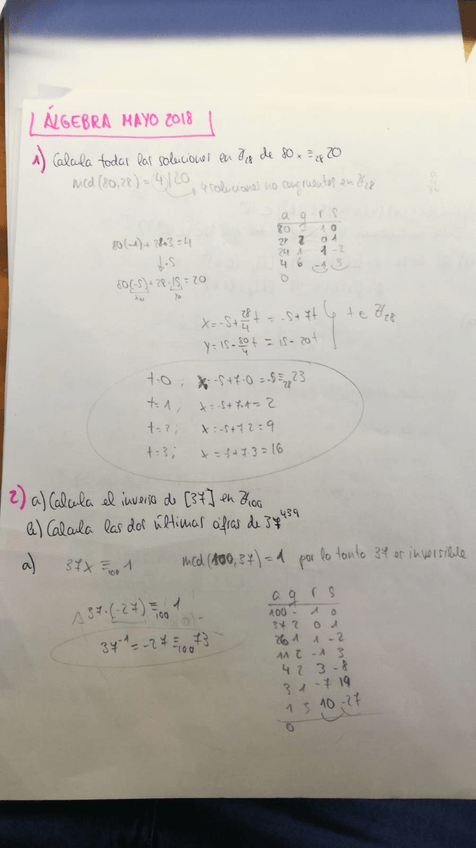 ÁLGEBRA MAYO 2018
1) Calcula todas las soluciones en Z₂₈ de 80x ≡₂₈ 20
mcd(80,28) = (4)|20, 4 soluciones no congruentes en Z₂₈
a q r s
80 - 1 0
28 2 0 1
24 1 1 -2
4 6 -1 3
0
80(-1) + 28·3 = 4
↓·5
80(-5) + 28·15 = 20
x = -5 + 28/4 t = -5 + 7t
y = 15 - 80/4 t = 15 - 20t
t ∈ Z₂₈
t=0; x = -5+7·0 = -5 ≡₂₈ 23
t=1; x = -5+7·1 = 2
t=2; x = -5+7·2 = 9
t=3; x = -5+7·3 = 16
2) a) Calcula el inverso de [37] en Z₁₀₀
b) Calcula las dos últimas cifras de 37⁴³⁹
a) 37x ≡₁₀₀ 1 mcd(100,37) = 1 por lo tanto 37 es inversible
37·(-27) ≡₁₀₀ 1
37⁻¹ = -27 ≡₁₀₀ 73
a q r s
100 - 1 0
37 2 0 1
26 1 1 -2
11 2 -1 3
4 2 3 -8
3 1 -7 19
1 3 10 -27
0